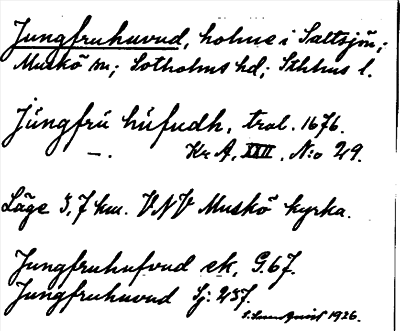 Jungfruhuvud, holme i Saltsjön;
Muskö sn; Sotholms hd; Sthlms l.
Jůngfrů hůfudh, trol. 1676.
—. Kr A, XXII, N:o 29.
Läge 3,7 km. VNV Muskö kyrka.
Jungfruhufvud ek, G.67.
Jungfruhuvud Sj. 237.
1926.